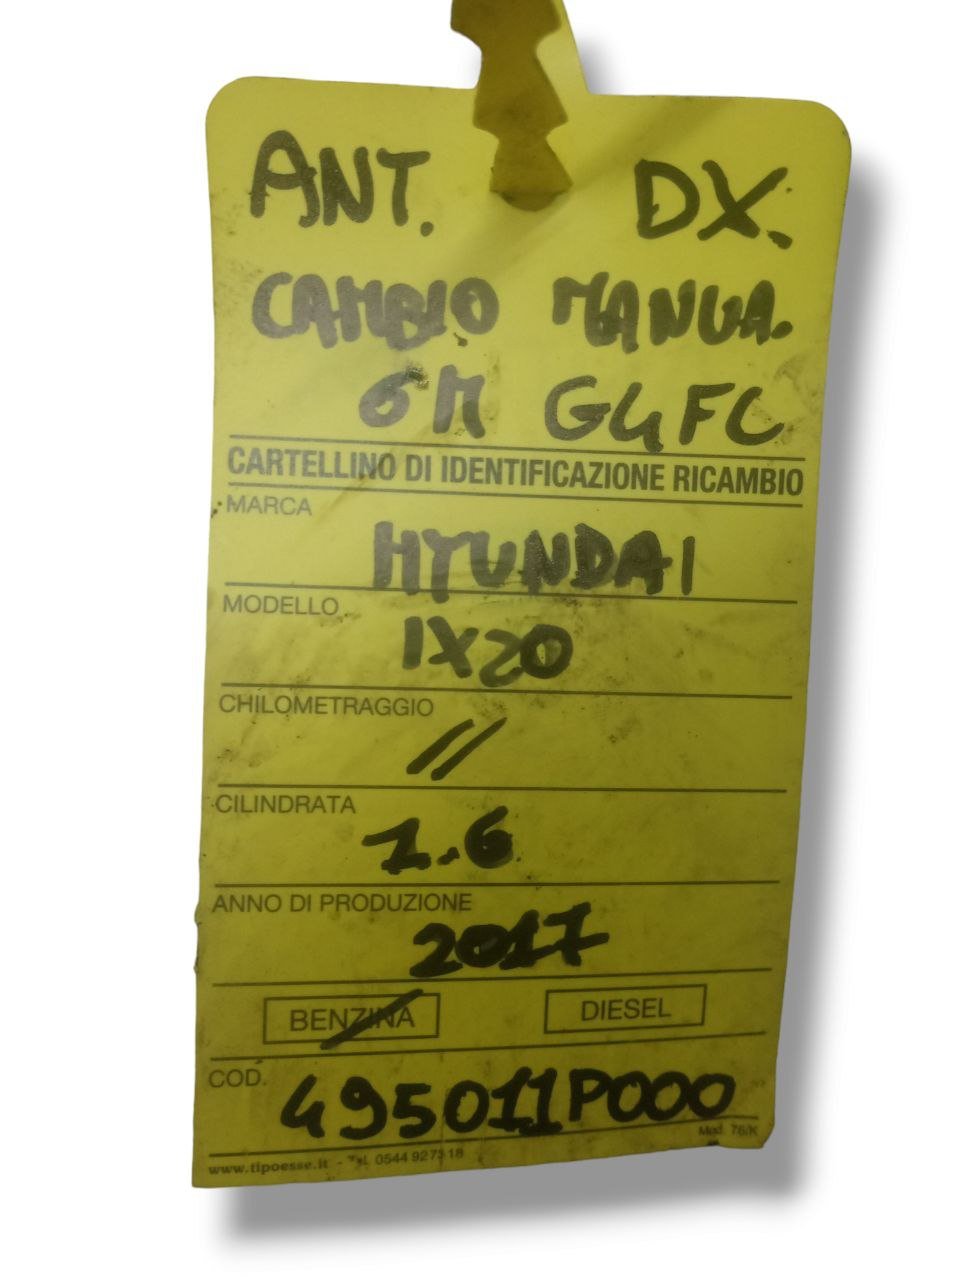 ANT. DX.
CAMBIO MANUA.
6M G4FC
CARTELLINO DI IDENTIFICAZIONE RICAMBIO
MARCA
HYUNDAI
MODELLO
IX20
CHILOMETRAGGIO
//
CILINDRATA
1.6
ANNO DI PRODUZIONE
2017
BENZINA DIESEL
COD.
495011P000
Mod. 76/K
www.tipoesse.it - Tel. 0544 927318